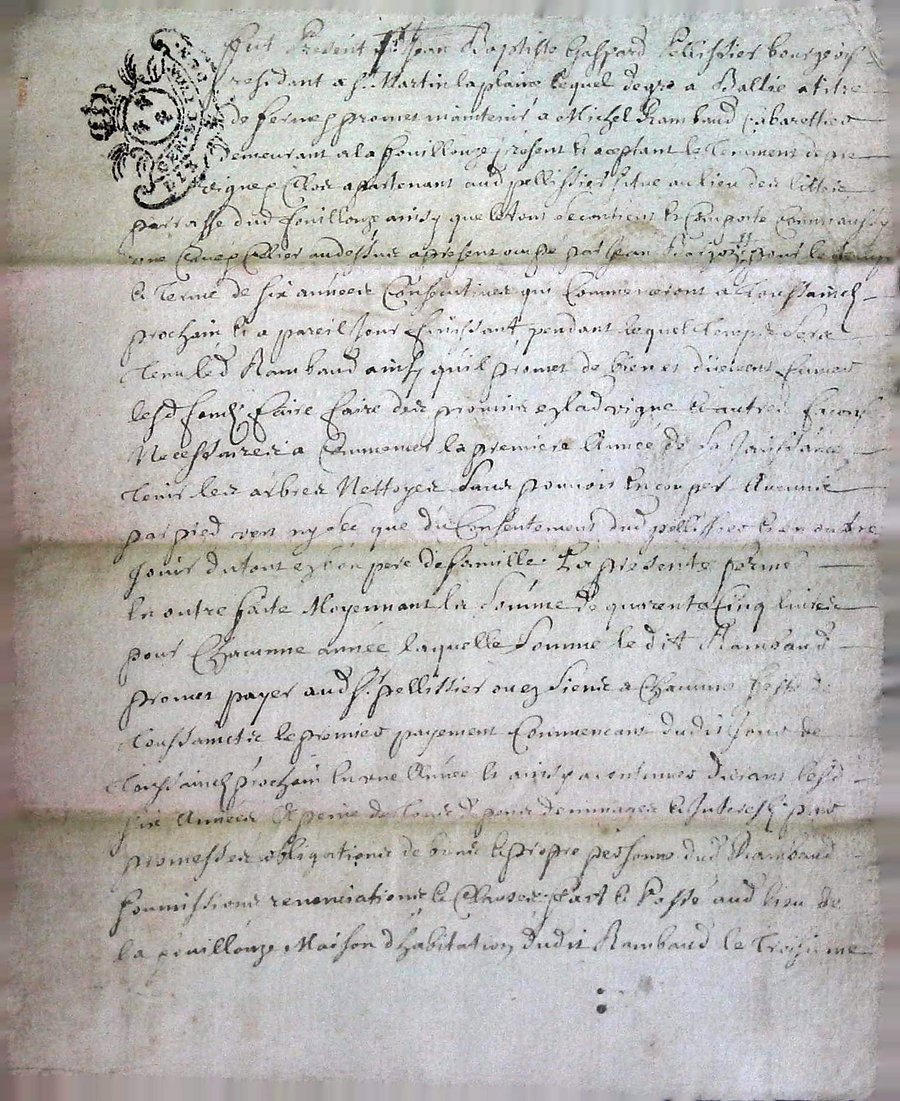 fut Present Sr Jean Baptiste Gaspard Pellissier bourgeois
residant a St Martin la plaine lequel de gre a Baillé a titre
de ferme et promet maintenir a Michel Rambaud Cabarettier
demeurant a la fouillouze present et aceptant le tenement de
vigne et apartenant aud pellissier situe au lieu de
parroisse dud fouillouze ainsy que le tout se contient et Comporte
une au dessus a present par Jean pour le temps
et terme de six années Consecutives qui Commenceront a Toussainctz
prochain et a pareil jour finissant pendant lequel temps sera
tenu led Rambaud ainsy qu'il promet de bien et duement
lesd fondz faire faire des provins en lad vigne et autres façons
Necessaires a Commencer la premiere Année de sa Jouissance
tenir les arbres Nettoyes sans pouvoir en couper Aucuns
par pied vert ny sec que du Consentement dud pellissier et en outre
Jouir du tout en bon pere de famille La presente ferme
En outre faite Moyennant la Somme de quarente Cinq livres
pour Chacunne année laquelle Somme le dit Rambaud
promet payer aud Sr pellissier ou ez siens a Chacune feste de
Toussainctz le premier payement Commencant dudit jour de
Toussainctz prochain en une Année et ainsy a continuer durant lesd
six Années A peine de tous despens dommages et Interestz par
promesses obligations de biens et propre personne dud Rambaud
soummissions renonciations et Clauses fait et Passé aud lieu de
la fouillouze Maison d'habitation dudit Rambaud le Troisieme